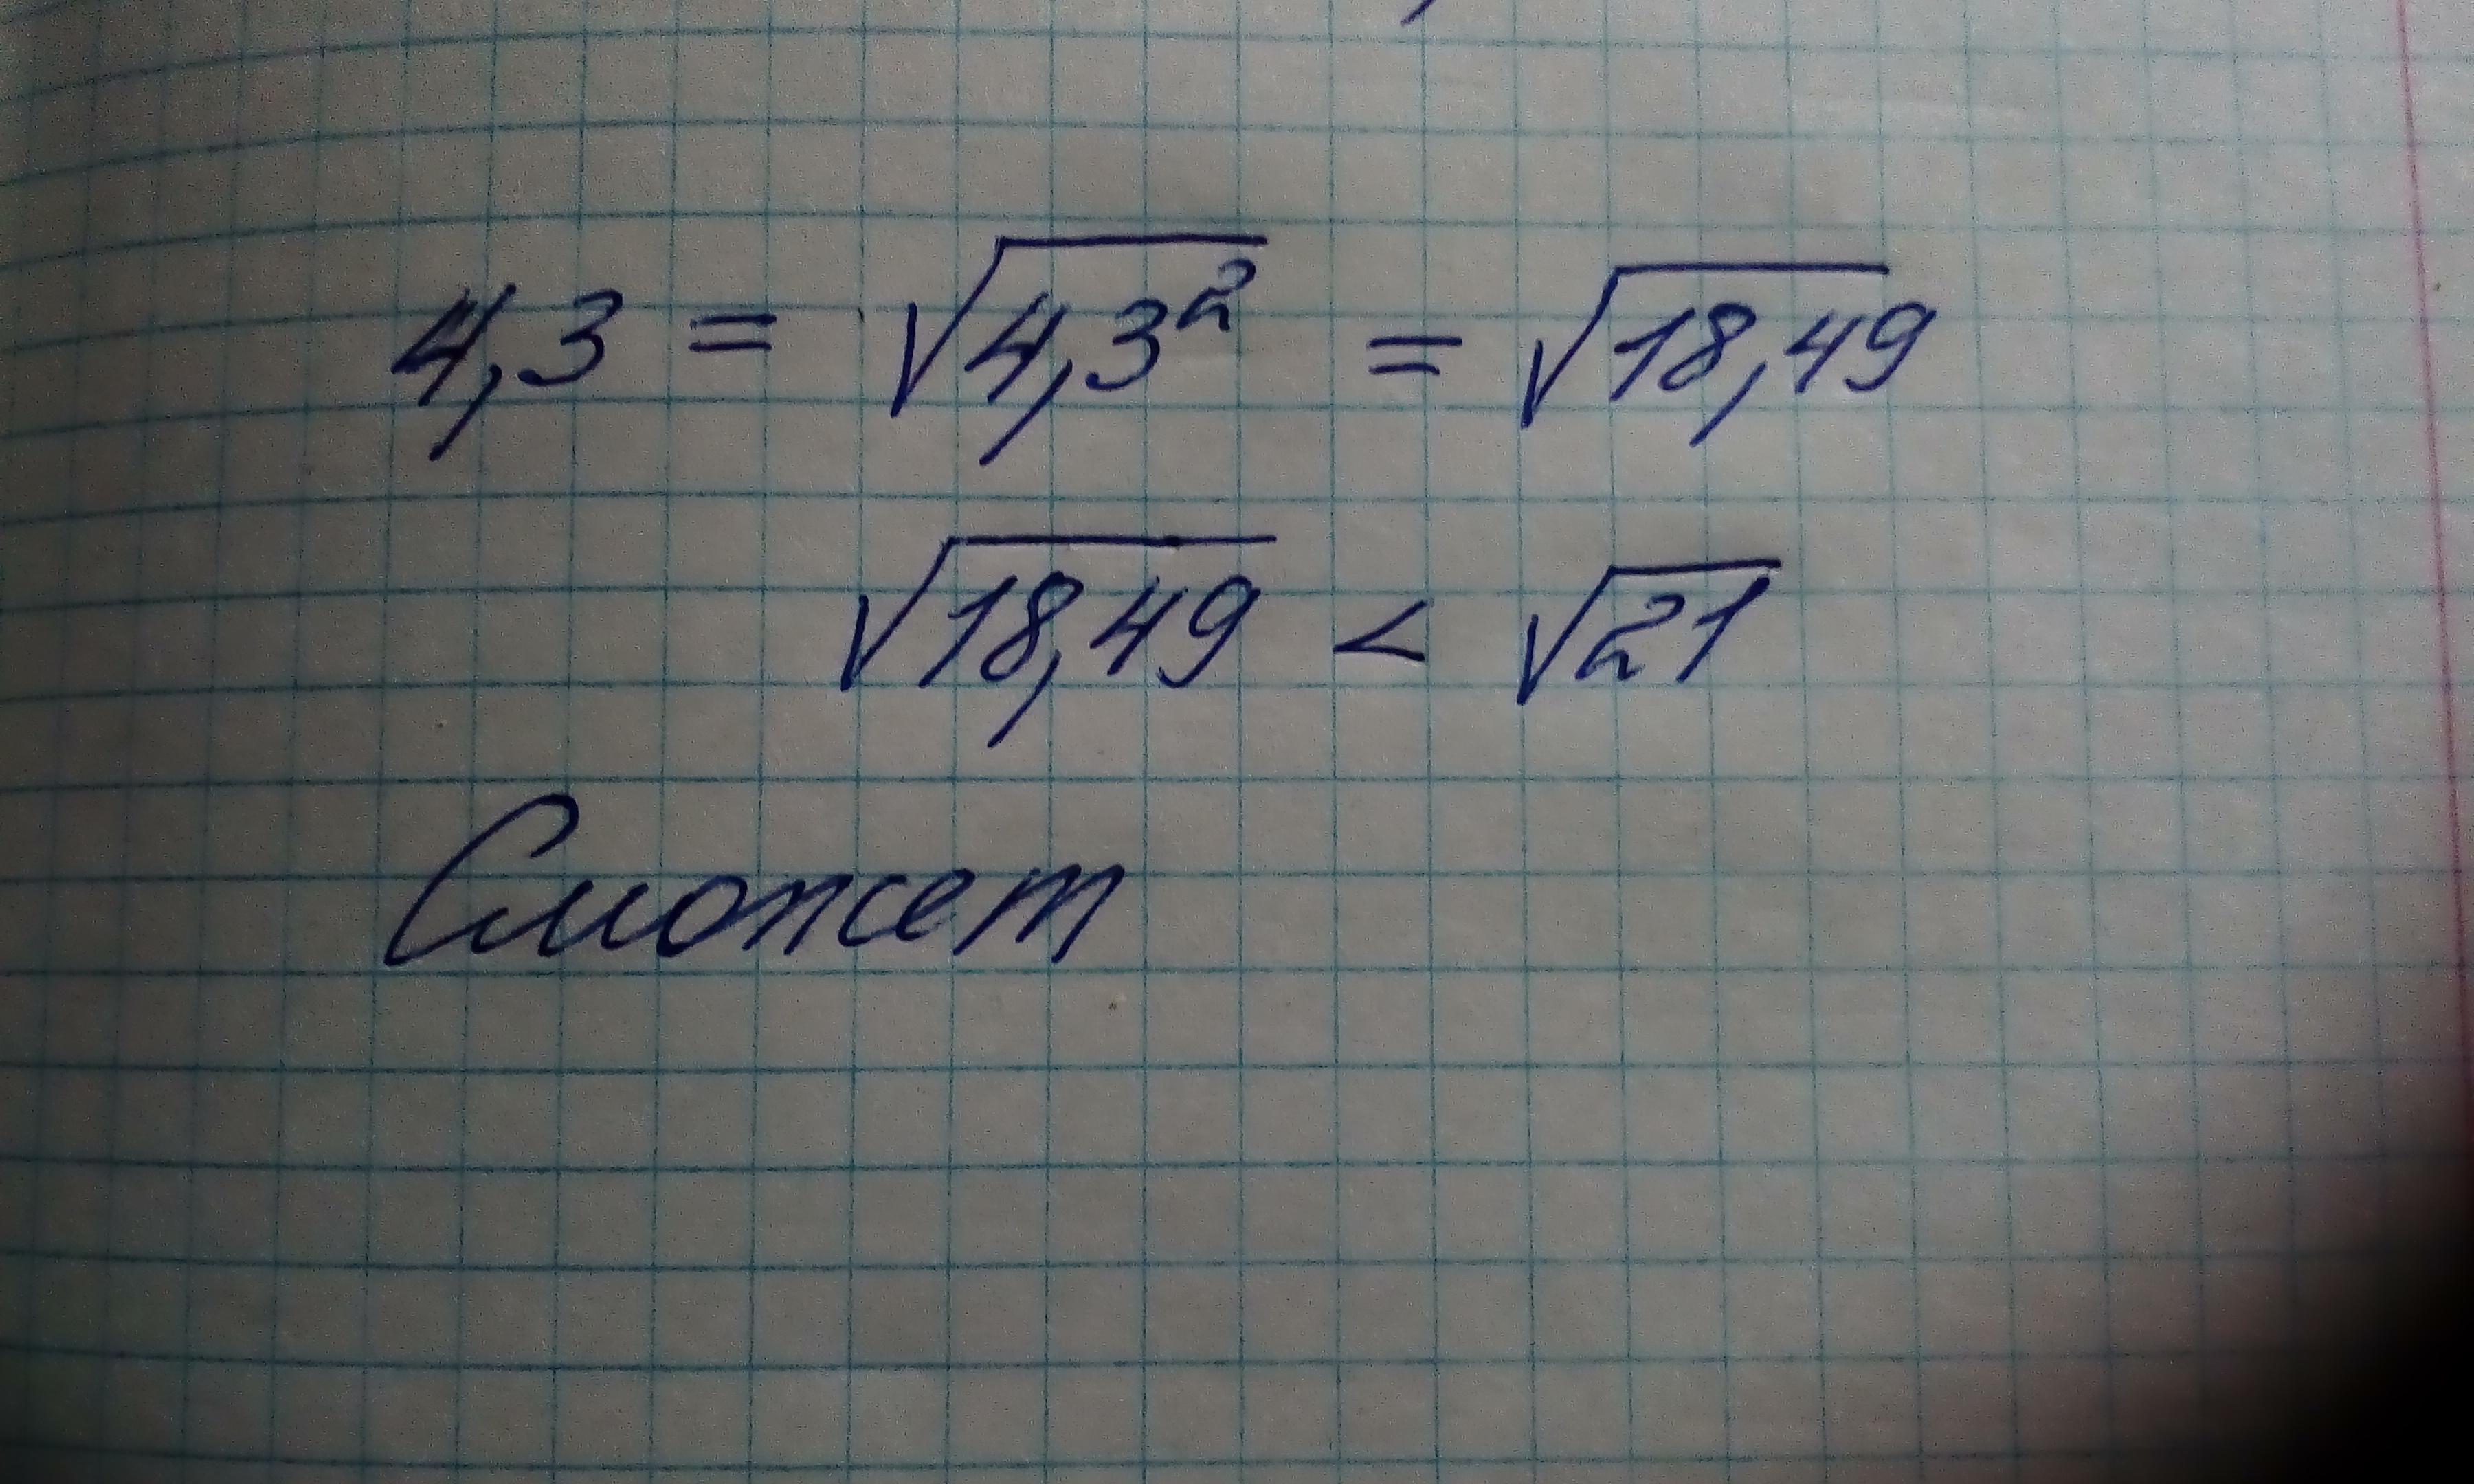 4,3 = √4,3² = √18,49
√18,49 < √21
Сможет